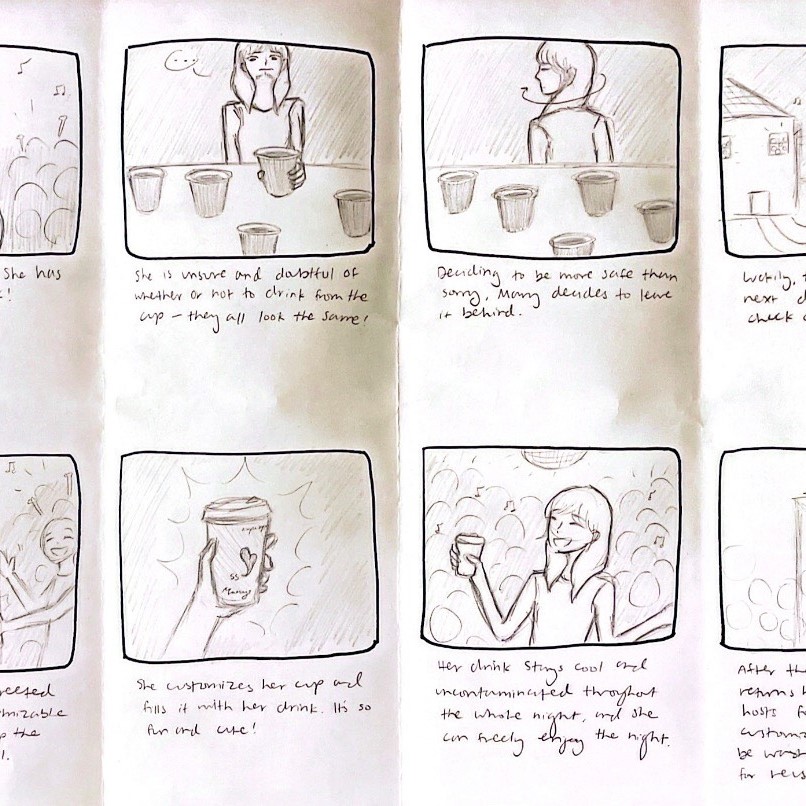 She has
!
...
She is unsure and doubtful of
whether or not to drink from the
cup – they all look the same!
Deciding to be more safe than
sorry, Many decides to leave
it behind.
next d
check
SS
Many
reeted
mizable
p the
l.
She customizes her cup and
fills it with her drink. It's so
fun and cute!
Her drink stays cool and
uncontaminated throughout
the whole night, and she
can freely enjoy the night.
After the
returns h
hosts f
customiz
be wash
for reus